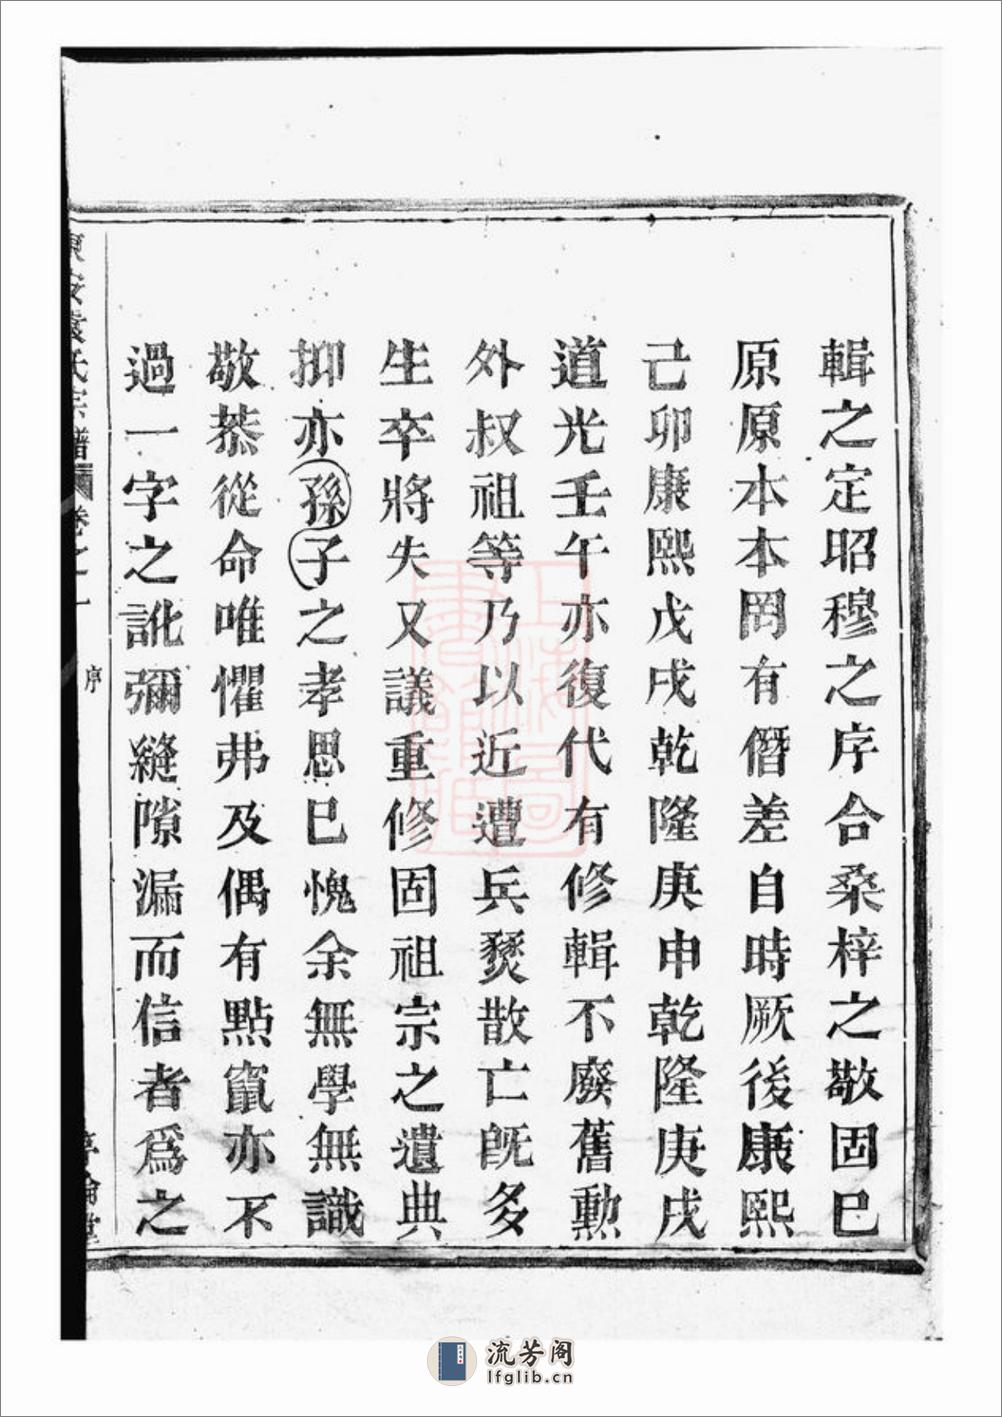 輯之定昭穆之序合桑梓之敬固已
原原本本罔有僭差自時厥後康熙
己卯康熙戊戌乾隆庚申乾隆庚戌
道光壬午亦復代有修輯不廢舊勳
外叔祖等乃以近遭兵燹散亡旣多
生卒將失又議重修固祖宗之遺典
抑亦孫子之孝思已愧余無學無識
敬恭從命唯懼弗及偶有點竄亦不
過一字之訛彌縫隙漏而信者爲之
東安袁氏宗譜
卷之一
序
上海圖書館藏
流芳阁
lfglib.cn